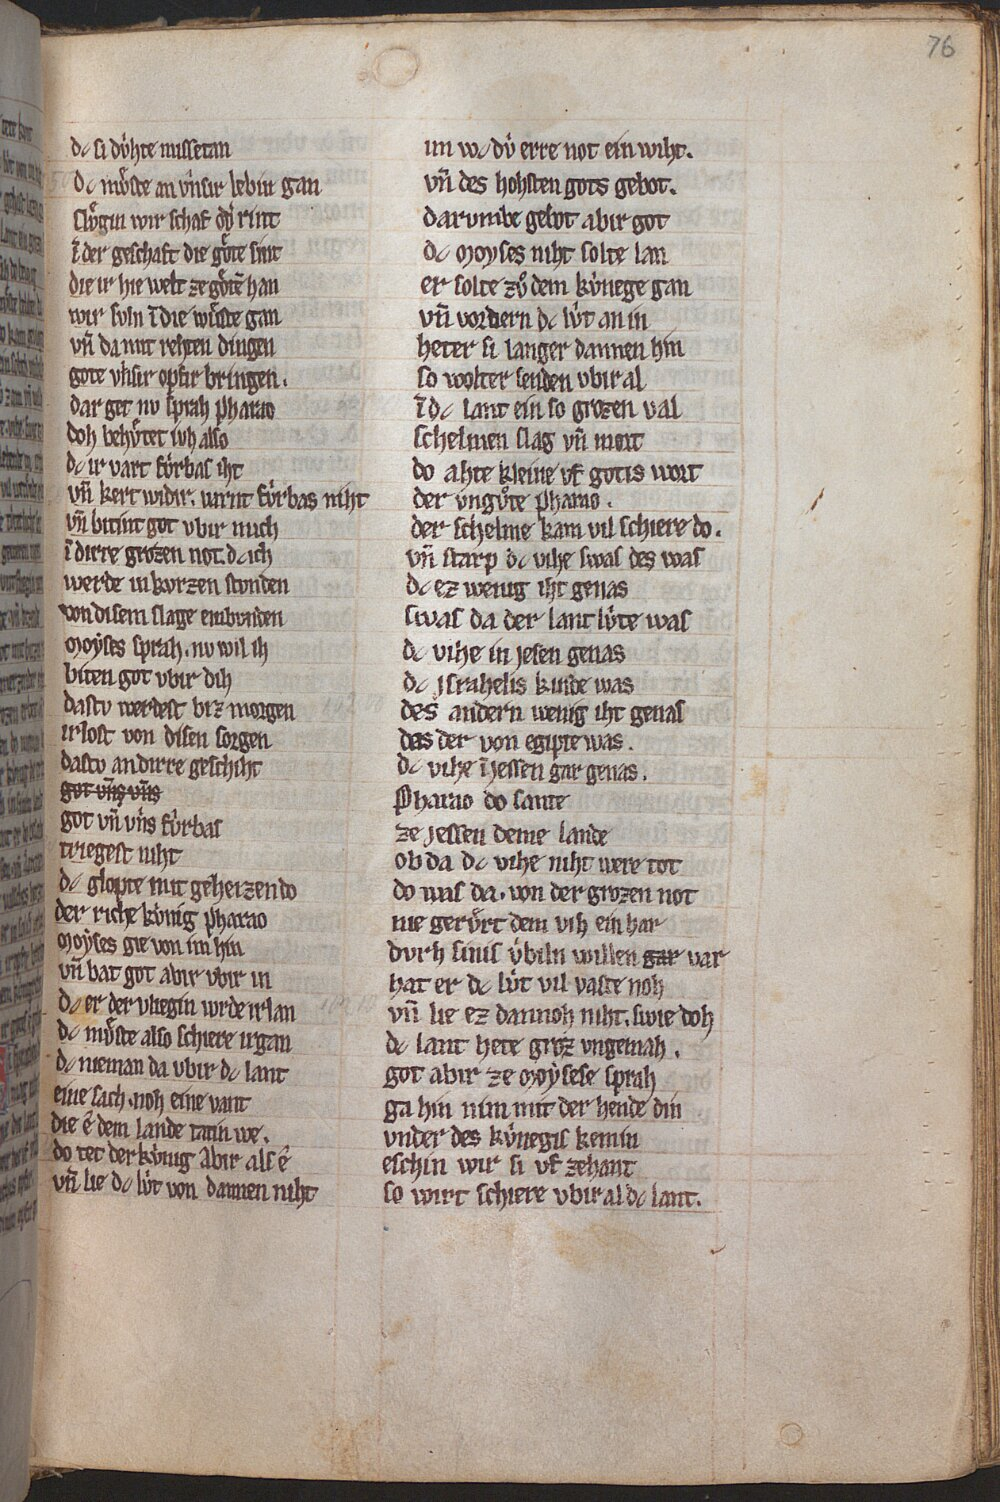 76
dc si dv́hte missetan
Dc mv̊ste an v́nsir lebin gan
slv̊gin wir schaf od́ rint
ī der geschaft die gőte sint
die ir hie welt ze gőtē han
wir svln ī die wv̊ste gan
vn̄ da mit rehten dingen
gote vńsir opfir bringen.
dar get nv sprah pharao
doh behv̊tet ivh also
dc ir vart fv́rbas iht
vn̄ kert widir. wrnt fv́rbas niht
vn̄ bitint got vbir mich
ī dirre grozen not. dc ich
werde in kvrzen stvnden
von disem slage enbvnden
Moyses sprah. nv wil ih
biten got vbir dih
dastv werdest biz morgen
irlost von disen sorgen
dastv an dirre geschiht
got vn̄s vn̄s
got vn̄ vńs fv́rbas
triegest niht
dc glopte mit geheizen do
der riche kv́nig pharao
Moyses gie von im hin
vn̄ bat got abir vbir in
dc er der vliegin wrde irlan
dc mv̊ste also schiere irgan
dc nieman da vbir dc lant
eine sach. noh eine vant
die é dem lande tatin we.
do tet der kv́nig abir als é
vn̄ lie dc lv́t von dannen niht
im wc dv́ erre not ein wiht.
vn̄ des hohsten gots gebot.
darvmbe gebot abir got
dc Moyses niht solte lan
er solte zv̊ dem kv́nege gan
vn̄ vordern dc lv́t an in
heter si langer dannen hin
so wolter senden vbir al
ī dc lant ein so grozen val
schelmen slag vn̄ mort
do ahte kleine vf gotis wort
der vngv̊te pharao.
der schelme kam vil schiere do.
vn̄ starp dc vihe swas des was
dc ez wenig iht genas
swas da der lantlv́te was
dc vihe in jesen genas
dc jsrahelis kinde was
des andern wenig iht genas
das der von egipte was.
dc vihe ī jessen gar genas.
Pharao do sante
ze jessen deme lande
ob da dc vihe niht were tot
do was da. von der grozen not
nie gerv́rt dem vih ein har
dvrh sinis v́biln willen gar var
hat er dc lv́t vil vaste noh
vn̄ lie ez dannoh niht. swie doh
dc lant hete groz vngemah.
got abir ze Moysese sprah
ga hin nim mit der hende din
vnder des kv́negis kemin
eschin wir si vf zehant
so wirt schiere vbir al dc lant.